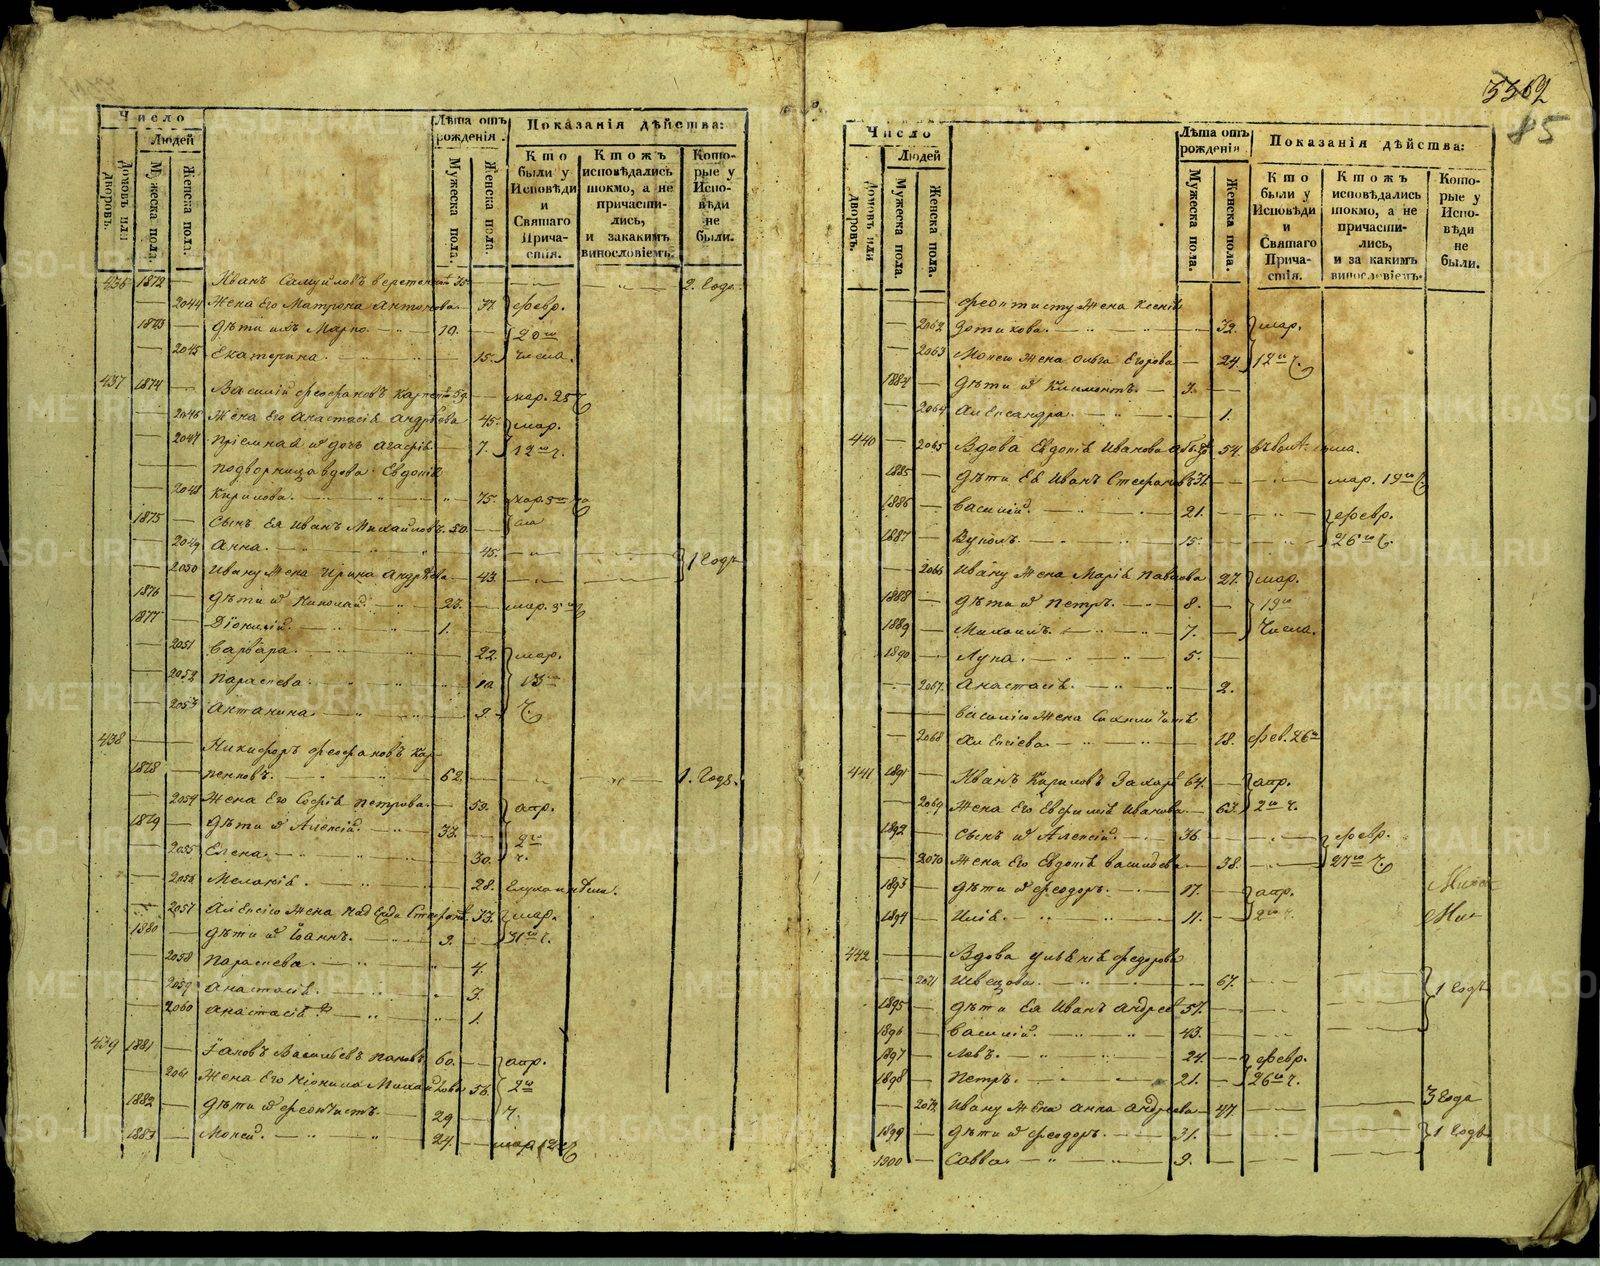 5362
85
Число
Людей
Домовъ или дворовъ.
Мужеска пола.
Женска пола.
Лѣта отъ рожденія.
Мужеска пола.
Женска пола.
Показанія дѣйства:
Кто были у Исповѣди и Святаго Прича-стія.
Ктожъ исповѣдались токмо, а не причасти-лись, и закакимъ винословіемъ.
Кото-рые у Испо-вѣди не были.
436 1872 — Иванъ Самуйловъ 35 2. года
— 2044 Жена Его Матрона Антонова 37. февр.
1873 — дѣти ихъ Марко 10. 20го
— 2045 Екатерина. 15. числа.
437 1874 — Василій Феофановъ 59. мар. 25 ч
— 2046 Жена Его Анастасія Андрѣева 45. мар.
— 2047 Пріемная дочь Агафія 7. 12го ч.
подворница вдова Евдокія
— 2048 Кирилова. 75. мар. 5го
1875 — Сынъ Ея Иванъ Михайловъ. 50.
— 2049 Анна. 45. 1 годъ
— 2050 Ивану Жена Ирина Андрѣева 43.
1876 — дѣти Николай 23. мар. 5го
1877 — Діонисій 1.
— 2051 Варвара. 22. мар.
— 2052 Параскева 13го
— 2053 Антонина. 9. ч.
438 Никифоръ Феофановъ Кар
1878 — пенковъ. 62. 1. годъ.
— 2054 Жена Его Софія Петрова 59. апр.
1879 — дѣти Алексій 33. 2го
— 2055 Елена. 30. ч.
— 2056 Меланія 28.
— 2057 Алексію Жена Надежда 33. мар.
1880 — дѣти Іоаннъ. 9. 31го ч.
— 2058 Параскева 4.
— 2059 Анастасія 3.
— 2060 Анастасія 2я 1.
439 1881 — Іаковъ Васильевъ Пановъ 60. апр.
— 2061 Жена Его Неонила Михайлова 56. 2го
1882 — дѣти Феоктистъ 29 ч.
1883 — Моисей. 24. мар. 12го
Число
Людей
Домовъ или дворовъ.
Мужеска пола.
Женска пола.
Лѣта отъ рожденія
Мужеска пола.
Женска пола.
Показанія дѣйства:
Кто были у Исповѣди и Святаго Прича-стія.
Ктожъ исповѣдались токмо, а не причасти-лись, и за какимъ винословіемъ.
Кото-рые у Испо-вѣди не были.
Феоктисту Жена Ксенія
— 2062 Фотикова. 32. мар.
— 2063 Моисею Жена Ольга Егорова 24. 12го ч.
1884 — дѣти Климентъ. 3.
— 2064 Александра 1.
440 — 2065 Вдова Евдокія Иванова 54.
1885 — дѣти Ея Иванъ Стефановъ 31. мар. 19го
1886 — Василій 21. февр.
1887 — Вуколъ. 15. 26го ч.
— 2066 Ивану Жена Марія Павлова 27. мар.
1888 — дѣти Петръ. 8. 19го
1889 — Михаилъ. 7. числа.
1890 — Лука 5.
— 2067. Анастасія. 2.
Василію Жена
— 2068 Алексіева 18. фев. 26го
441 1891 — Иванъ Кириловъ 64. апр.
— 2069 Жена Его Евфимія Иванова 63. 2го ч.
1892 — сынъ Алексій. 36. февр.
— 2070 Жена Его Евдокія Васильева 38. 27го ч.
1893 — дѣти Феодоръ. 17. апр.
1894 — Илія. 11. 2го ч.
442 Вдова Ульянія Федорова
— 2071 Швецова. 67. 1 годъ
1895 — дѣти Ея Иванъ Андреев 57.
1896 — Василій. 43.
1897 — Левъ. 24. февр.
1898 — Петръ. 21. 26го ч.
— 2072 Ивану Жена Анна Андреева 47. 3 года
1899 — дѣти Феодоръ. 31. 1 годъ
1900 — Савва. 9.
METRIKI.GASO-URAL.RU